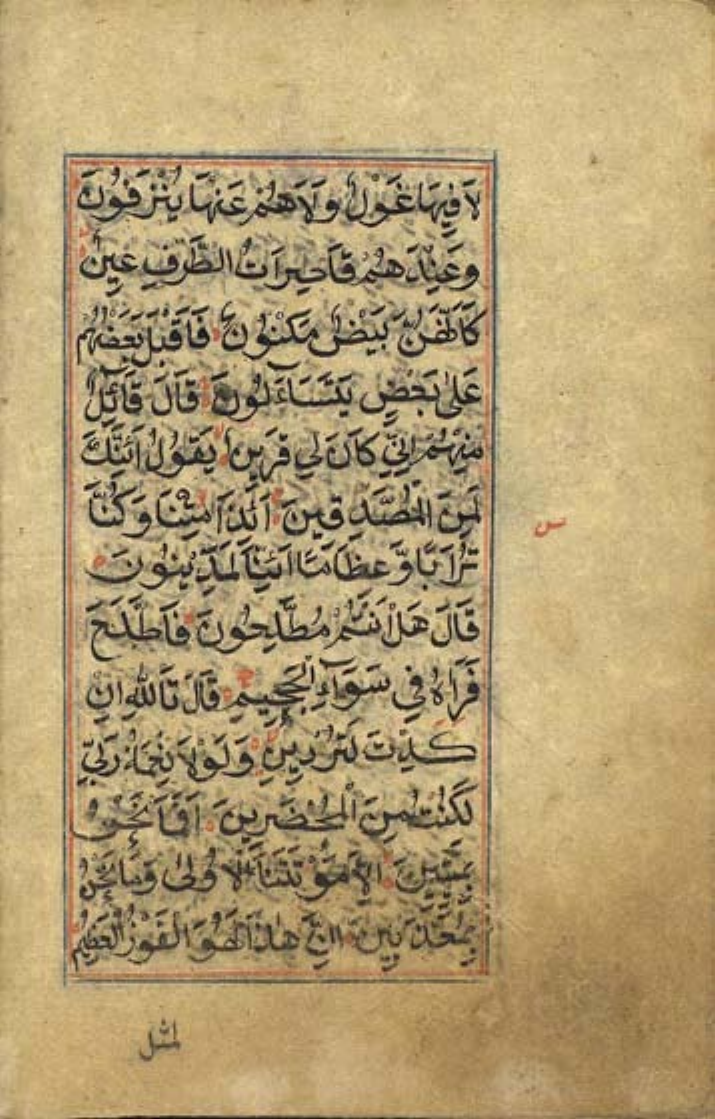 لَا فِيهَا غَوْلٌ وَلَا هُمْ عَنْهَا يُنْزَفُونَ
وَعِنْدَهُمْ قَاصِرَاتُ الطَّرْفِ عِينٌ
كَأَنَّهُنَّ بَيْضٌ مَكْنُونٌ فَأَقْبَلَ بَعْضُهُمْ
عَلَى بَعْضٍ يَتَسَاءَلُونَ قَالَ قَائِلٌ
مِنْهُمْ إِنِّي كَانَ لِي قَرِينٌ يَقُولُ أَئِنَّكَ
لَمِنَ الْمُصَدِّقِينَ أَئِذَا مِتْنَا وَكُنَّا
تُرَابًا وَعِظَامًا أَئِنَّا لَمَدِينُونَ
قَالَ هَلْ أَنْتُمْ مُطَّلِعُونَ فَاطَّلَعَ
فَرَآهُ فِي سَوَاءِ الْجَحِيمِ قَالَ تَاللَّهِ إِنْ
كِدْتَ لَتُرْدِينِ وَلَوْلَا نِعْمَةُ رَبِّي
لَكُنْتُ مِنَ الْمُحْضَرِينَ أَفَمَا نَحْنُ
بِمَيِّتِينَ إِلَّا مَوْتَتَنَا الْأُولَى وَمَا نَحْنُ
بِمُعَذَّبِينَ إِنَّ هَذَا لَهُوَ الْفَوْزُ الْعَظِيمُ
س
لمثل